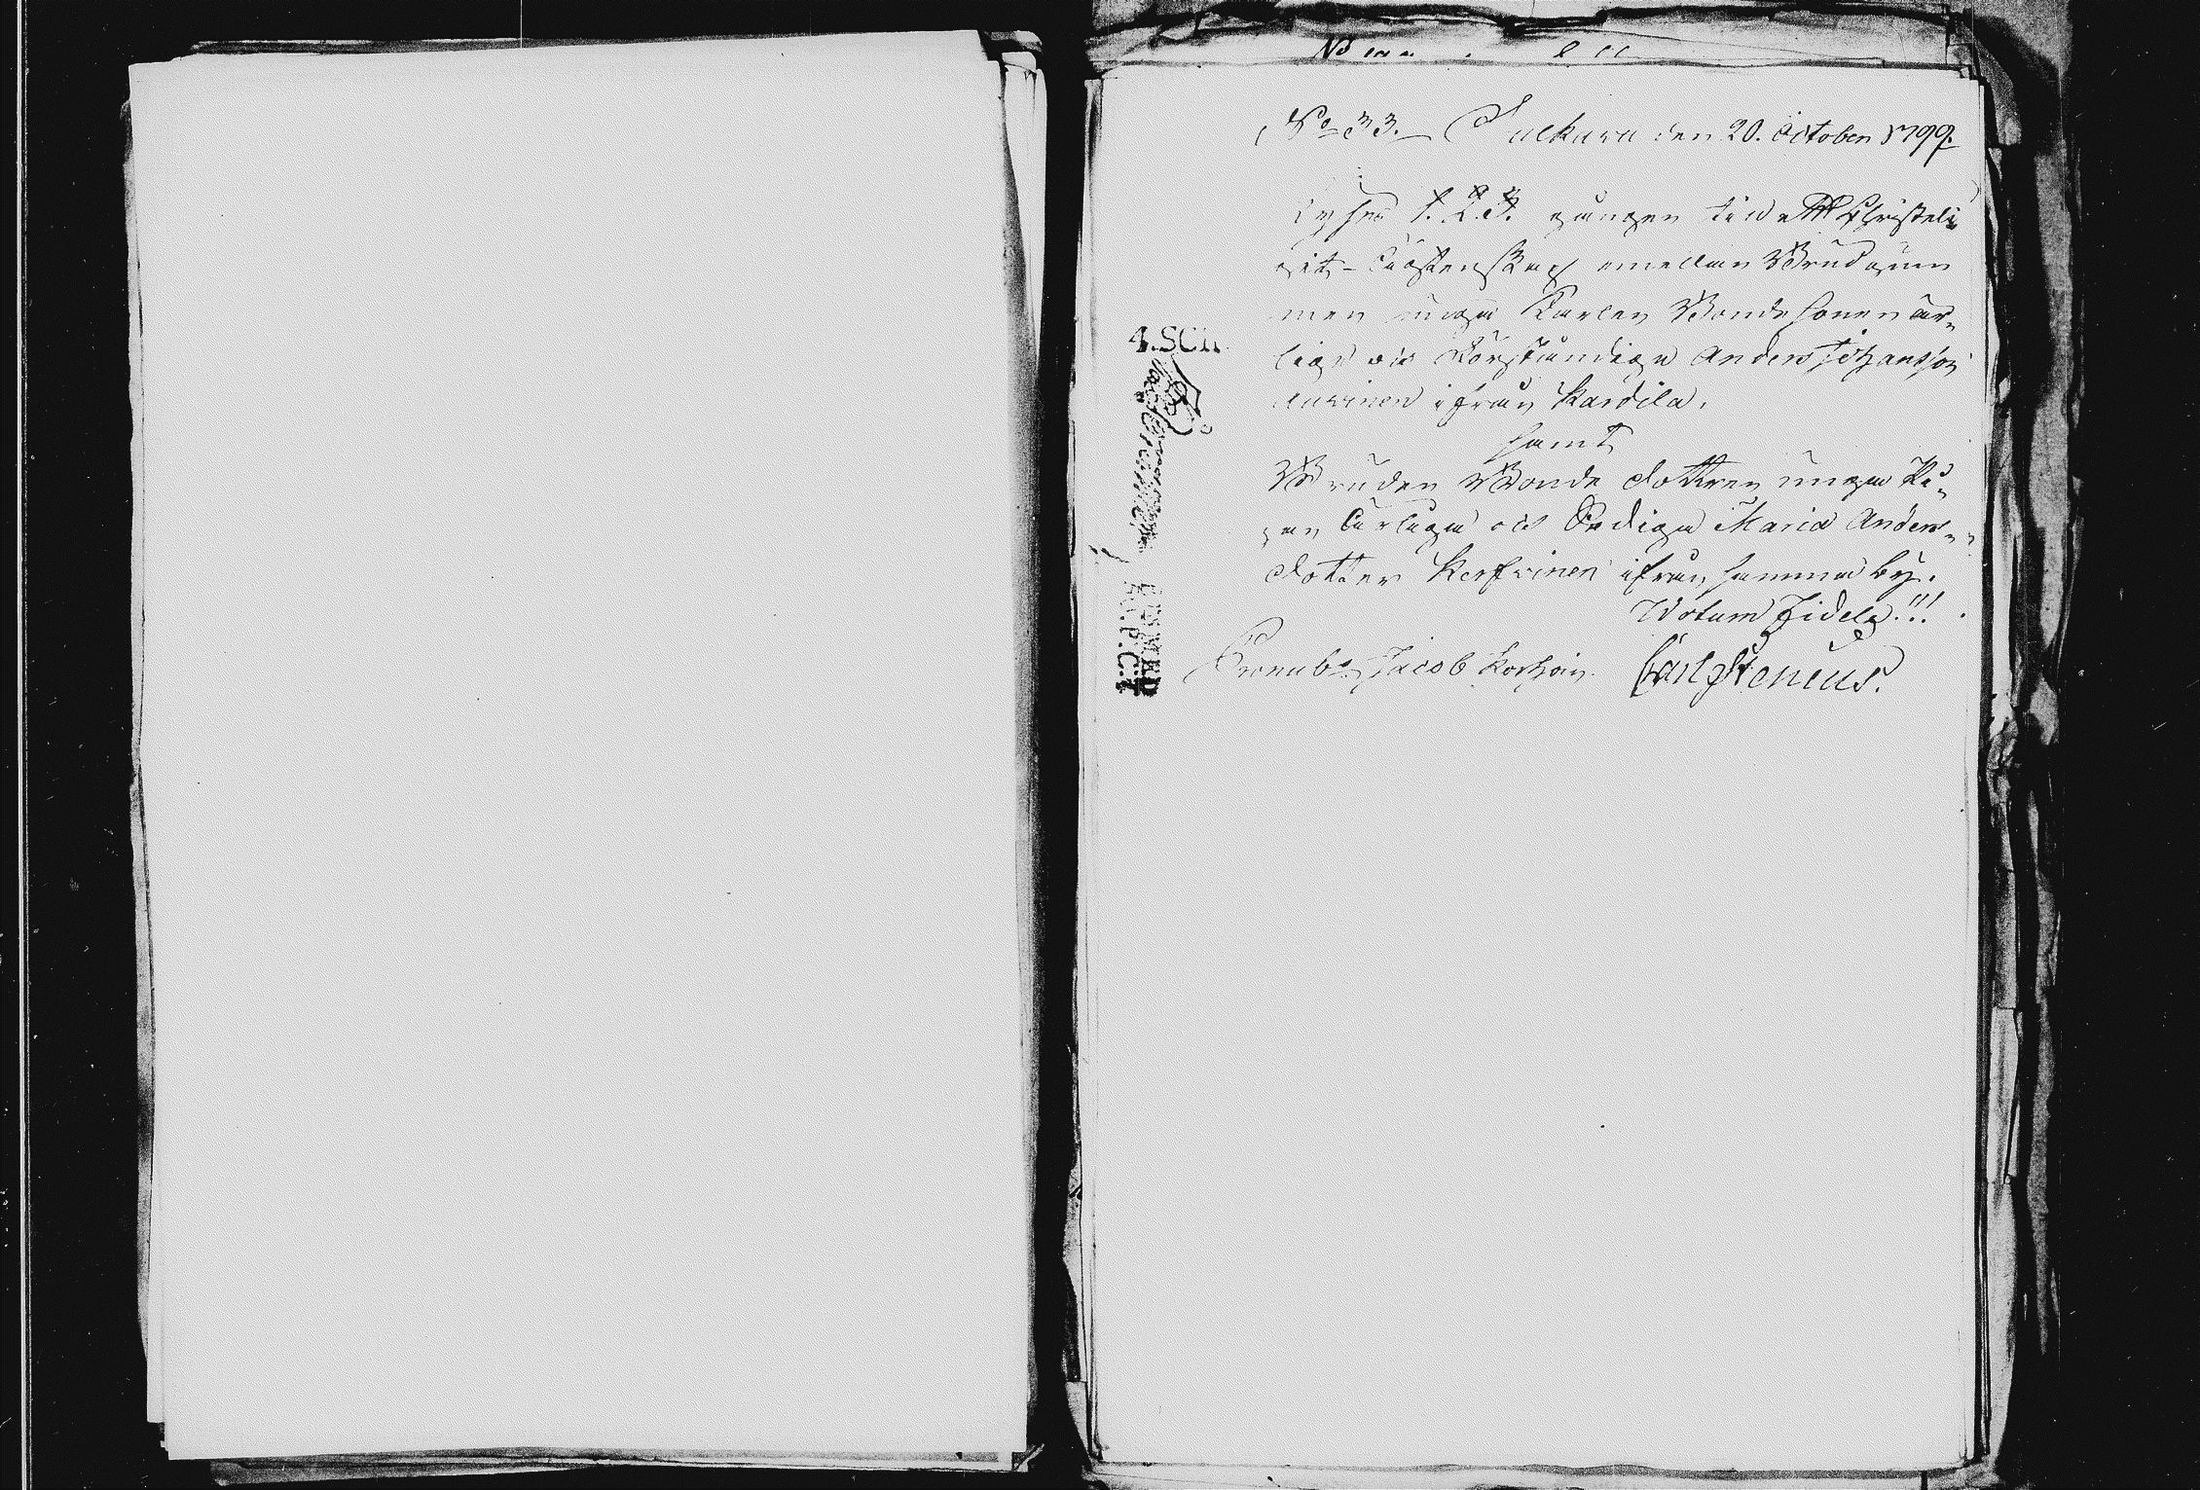 No 33. Julkawa den 20. October 1799.
Lyses 1. 2. 3. gången till ett Christeli
git ächtenskap emellan Brudgum
men unga Karlen Bondesonen är-
lige och Förståndige Anders Johansson
ifrån Kardila.
samt
Bruden Bonde dottren unga Pi-
gan ärliga och Sediga Maria Anders-
dotter Kerfwinen ifrån samma by.
Votum Fidele!!!
Pronub: Jacob Korhoin. Carl Stenius.
4. SCH